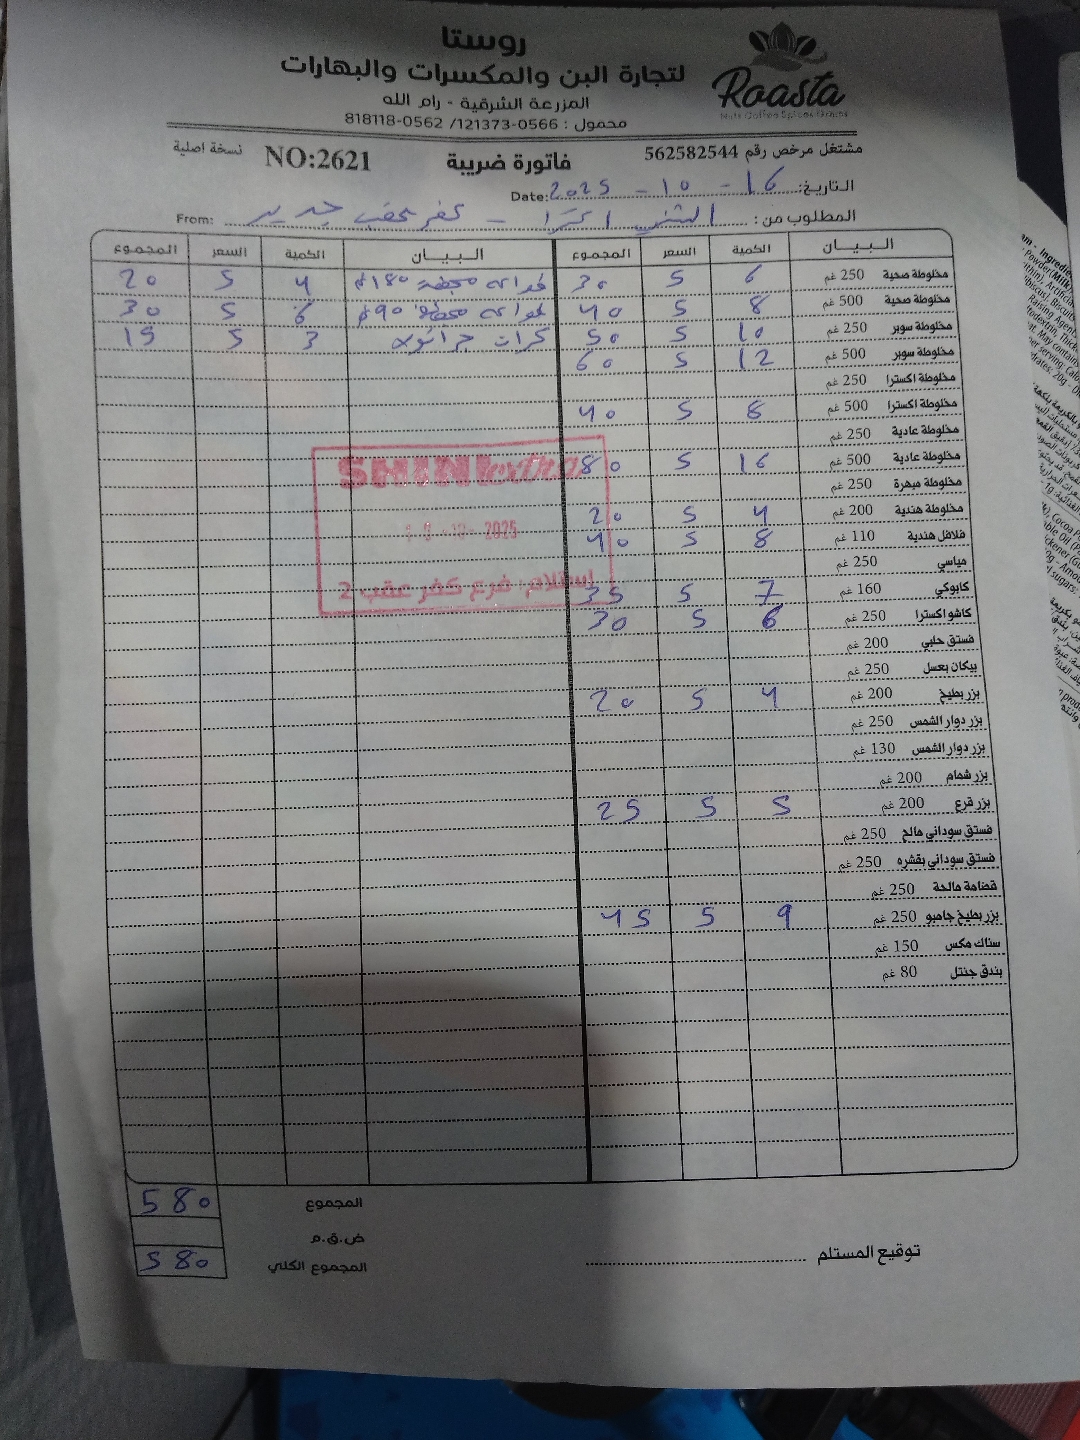 روستا
لتجارة البن والمكسرات والبهارات
المزرعة الشرقية - رام الله
محمول : 0566-121373/ 0562-818118
Roasta
Nuts Coffee Spices
مشتغل مرخص رقم 562582544 فاتورة ضريبة NO:2621 نسخة اصلية
التاريخ: 16 - 10 - 2025 Date:
المطلوب من : الشني اكسترا - كفر عقب جديد From:
البـيـان الكمية السعر المجموع البـيـان الكمية السعر المجموع
مخلوطة صحية 250 غم 6 5 30 مجففة 180 4 5 20
مخلوطة صحية 500 غم 8 5 40 90 6 5 30
مخلوطة سوبر 250 غم 10 5 50 كرات جرانولا 3 5 15
مخلوطة سوبر 500 غم 12 5 60
مخلوطة اكسترا 250 غم
مخلوطة اكسترا 500 غم 8 5 40
مخلوطة عادية 250 غم
مخلوطة عادية 500 غم 16 5 80
مخلوطة مبهرة 250 غم
مخلوطة هندية 200 غم 4 5 20
فلافل هندية 110 غم 8 5 40
مياسي 250 غم
كابوكي 160 غم 7 5 35
كاشو اكسترا 250 غم 6 5 30
فستق حلبي 200 غم
بيكان بعسل 250 غم
بزر بطيخ 200 غم 4 5 20
بزر دوار الشمس 250 غم
بزر دوار الشمس 130 غم
بزر شمام 200 غم
بزر قرع 200 غم 5 5 25
فستق سوداني مالح 250 غم
فستق سوداني بقشره 250 غم
قضامة مالحة 250 غم
بزر بطيخ جامبو 250 غم 9 5 45
سناك مكس 150 غم
بندق جنتل 80 غم
SHINI extra
-10- 2025
استلام: فرع كفر عقب 2
المجموع 580
ض.ق.م
المجموع الكلي 580
توقيع المستلم